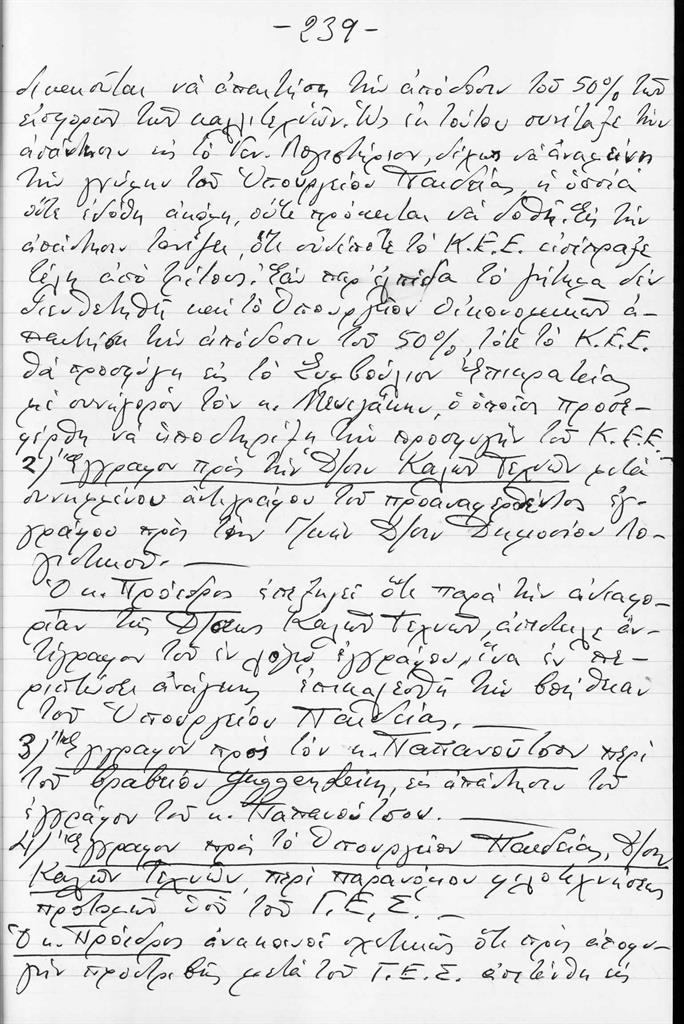 - 239 -
δικαιοῦται νὰ ἀπαιτήσῃ τὴν ἀπόδοσιν τοῦ 50% τῶν
εἰσφορῶν τῶν καλλιτεχνῶν. Ὡς ἐκ τούτου συνέταξε τὴν
ἀπάντησιν εἰς τὸ Γεν. Λογιστήριον, δίχως νὰ ἀναμείνῃ
τὴν γνώμην τοῦ Ὑπουργείου Παιδείας, ἡ ὁποία
οὔτε ἐδόθη ἀκόμη, οὔτε πρόκειται νὰ δοθῇ. Εἰς τὴν
ἀπάντησιν τονίζει, ὅτι οὐδέποτε τὸ Κ.Ε.Ε. εἰσέπραξε
τέλη ἀπὸ τρίτους. Ἐὰν παρ' ἐλπίδα τὸ ζήτημα δὲν
διευθετηθῇ καὶ τὸ Ὑπουργεῖον Οἰκονομικῶν ἀ-
παιτήσῃ τὴν ἀπόδοσιν τοῦ 50%, τότε τὸ Κ.Ε.Ε.
θὰ προσφύγῃ εἰς τὸ Συμβούλιον Ἐπικρατείας
μὲ συνήγορον τὸν κ. Μενελάκην, ὁ ὁποῖος προσε-
φέρθη νὰ ὑποστηρίξῃ τὴν προσφυγὴν τοῦ Κ.Ε.Ε.
2) Ἔγγραφον πρὸς τὴν Δ/σιν Καλῶν Τεχνῶν μετὰ
συνημμένου ἀντιγράφου τοῦ προαναφερθέντος ἐγ-
γράφου πρὸς τὴν Γ/κὴν Δ/σιν Δημοσίου Λο-
γιστικοῦ. —
Ὁ κ. Πρόεδρος ἐπεξηγεῖ ὅτι παρὰ τὴν ἀδιαφο-
ρίαν τῆς Δ/σεως Καλῶν Τεχνῶν, ἀπέστειλε ἀν-
τίγραφον τοῦ ἐν λόγῳ ἐγγράφου, ἵνα ἐν πε-
ριπτώσει ἀνάγκης ἐπικαλεσθῇ τὴν βοήθειαν
τοῦ Ὑπουργείου Παιδείας. —
3) Ἔγγραφον πρὸς τὸν κ. Παπανοῦτσον περὶ
τοῦ βραβείου Guggenheim, εἰς ἀπάντησιν τοῦ
ἐγγράφου τοῦ κ. Παπανούτσου. —
4) Ἔγγραφον πρὸς τὸ Ὑπουργεῖον Παιδείας, Δ/σιν
Καλῶν Τεχνῶν, περὶ παρανόμου φιλοτεχνήσεως
προτομῶν ὑπὸ τοῦ Γ.Ε.Σ. —
Ὁ κ. Πρόεδρος ἀνακοινοῖ σχετικῶς ὅτι πρὸς ἀποφυ-
γὴν προστριβῆς μετὰ τοῦ Γ.Ε.Σ. ἀπετάθη εἰς